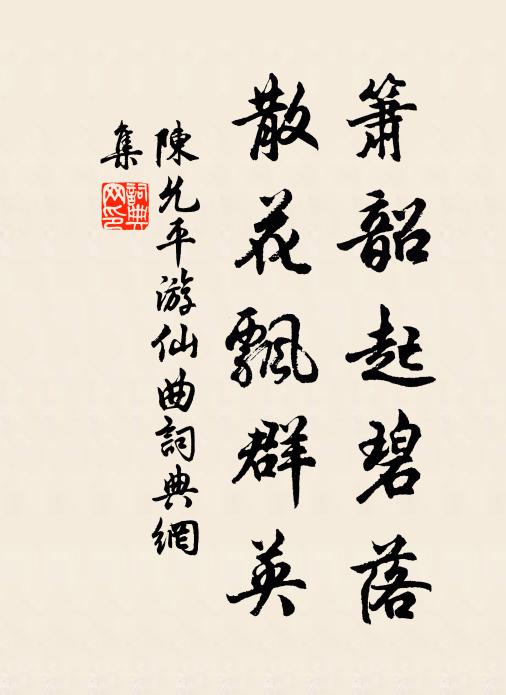 簫韶起碧落
散花飄群英
陳允平游仙曲詞典網
集
詞典网印